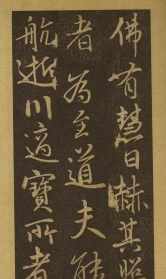 佛有慧日赫其昭
者为至道夫能
航逝川適寶所者